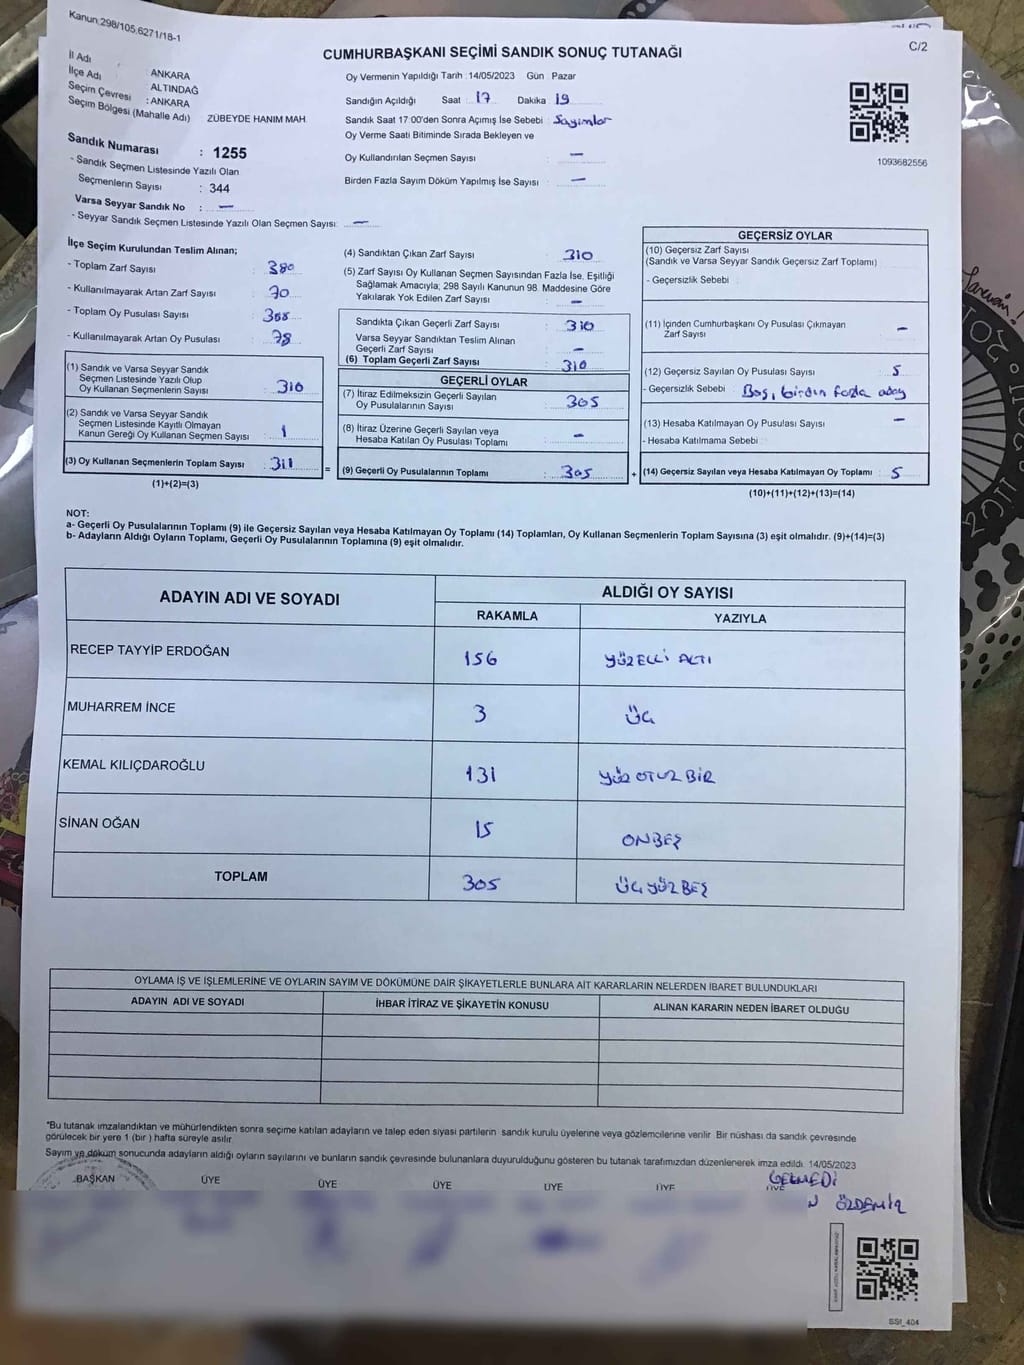 Kanun:298/105,6271/18-1
C/2
CUMHURBAŞKANI SEÇİMİ SANDIK SONUÇ TUTANAĞI
İl Adı : ANKARA
İlçe Adı : ALTINDAĞ
Seçim Çevresi : ANKARA
Seçim Bölgesi (Mahalle Adı) ZÜBEYDE HANIM MAH.
Sandık Numarası : 1255
- Sandık Seçmen Listesinde Yazılı Olan
Seçmenlerin Sayısı : 344
Varsa Seyyar Sandık No : —
- Seyyar Sandık Seçmen Listesinde Yazılı Olan Seçmen Sayısı: —
Oy Vermenin Yapıldığı Tarih :14/05/2023 Gün : Pazar
Sandığın Açıldığı Saat : 17 Dakika : 19
Sandık Saat 17:00'den Sonra Açımış İse Sebebi : Sayımlar
Oy Verme Saati Bitiminde Sırada Bekleyen ve
Oy Kullandırılan Seçmen Sayısı : —
Birden Fazla Sayım Döküm Yapılmış İse Sayısı : —
1093682556
İlçe Seçim Kurulundan Teslim Alınan;
- Toplam Zarf Sayısı : 380
- Kullanılmayarak Artan Zarf Sayısı : 70
- Toplam Oy Pusulası Sayısı : 388
- Kullanılmayarak Artan Oy Pusulası : 78
(1) Sandık ve Varsa Seyyar Sandık
Seçmen Listesinde Yazılı Olup
Oy Kullanan Seçmenlerin Sayısı : 310
(2) Sandık ve Varsa Seyyar Sandık
Seçmen Listesinde Kayıtlı Olmayan
Kanun Gereği Oy Kullanan Seçmen Sayısı : 1
(3) Oy Kullanan Seçmenlerin Toplam Sayısı : 311
(1)+(2)=(3)
(4) Sandıktan Çıkan Zarf Sayısı : 310
(5) Zarf Sayısı Oy Kullanan Seçmen Sayısından Fazla İse, Eşitliği
Sağlamak Amacıyla; 298 Sayılı Kanunun 98. Maddesine Göre
Yakılarak Yok Edilen Zarf Sayısı : —
Sandıkta Çıkan Geçerli Zarf Sayısı : 310
Varsa Seyyar Sandıktan Teslim Alınan
Geçerli Zarf Sayısı : —
(6) Toplam Geçerli Zarf Sayısı : 310
GEÇERLİ OYLAR
(7) İtiraz Edilmeksizin Geçerli Sayılan
Oy Pusulalarının Sayısı : 305
(8) İtiraz Üzerine Geçerli Sayılan veya
Hesaba Katılan Oy Pusulası Toplamı : —
= (9) Geçerli Oy Pusulalarının Toplamı : 305
GEÇERSİZ OYLAR
(10) Geçersiz Zarf Sayısı
(Sandık ve Varsa Seyyar Sandık Geçersiz Zarf Toplamı)
- Geçersizlik Sebebi :
(11) İçinden Cumhurbaşkanı Oy Pusulası Çıkmayan
Zarf Sayısı : —
(12) Geçersiz Sayılan Oy Pusulası Sayısı : 5
- Geçersizlik Sebebi : Boş, birden fazla aday
(13) Hesaba Katılmayan Oy Pusulası Sayısı : —
- Hesaba Katılmama Sebebi :
+ (14) Geçersiz Sayılan veya Hesaba Katılmayan Oy Toplamı : 5
(10)+(11)+(12)+(13)=(14)
NOT:
a- Geçerli Oy Pusulalarının Toplamı (9) ile Geçersiz Sayılan veya Hesaba Katılmayan Oy Toplamı (14) Toplamları, Oy Kullanan Seçmenlerin Toplam Sayısına (3) eşit olmalıdır. (9)+(14)=(3)
b- Adayların Aldığı Oyların Toplamı, Geçerli Oy Pusulalarının Toplamına (9) eşit olmalıdır.
ADAYIN ADI VE SOYADI ALDIĞI OY SAYISI
RAKAMLA YAZIYLA
RECEP TAYYİP ERDOĞAN 156 YÜZELLİ ALTI
MUHARREM İNCE 3 ÜÇ
KEMAL KILIÇDAROĞLU 131 YÜZ OTUZ BİR
SİNAN OĞAN 15 ONBEŞ
TOPLAM 305 ÜÇ YÜZ BEŞ
OYLAMA İŞ VE İŞLEMLERİNE VE OYLARIN SAYIM VE DÖKÜMÜNE DAİR ŞİKAYETLERLE BUNLARA AİT KARARLARIN NELERDEN İBARET BULUNDUKLARI
ADAYIN ADI VE SOYADI İHBAR İTİRAZ VE ŞİKAYETİN KONUSU ALINAN KARARIN NEDEN İBARET OLDUĞU
*Bu tutanak imzalandıktan ve mühürlendikten sonra seçime katılan adayların ve talep eden siyasi partilerin sandık kurulu üyelerine veya gözlemcilerine verilir. Bir nüshası da sandık çevresinde
görülecek bir yere 1 (bir ) hafta süreyle asılır.
Sayım ve döküm sonucunda adayların aldığı oyların sayılarını ve bunların sandık çevresinde bulunanlara duyurulduğunu gösteren bu tutanak tarafımızdan düzenlenerek imza edildi. 14/05/2023
BAŞKAN ÜYE ÜYE ÜYE ÜYE ÜYE ÜYE
GELMEDİ
ÖZDEMİR
SSI_404